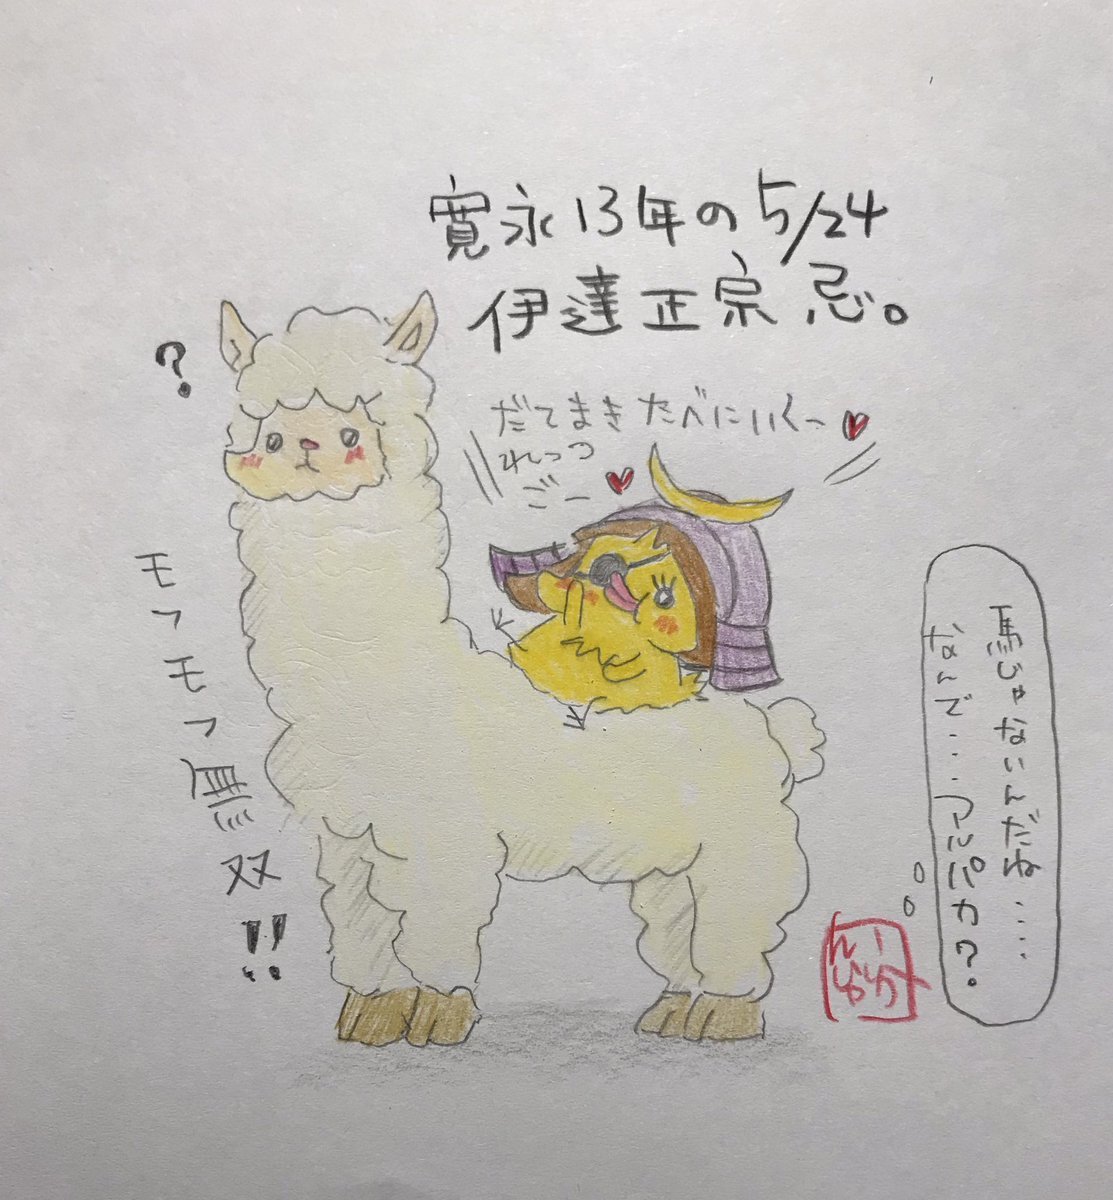 寛永13年の5/24
伊達正宗忌。
?
だてまきたべにいくー
れっつ
ごー
モフモフ無双!!
馬じゃないんだね....
なんで...アルパカ?